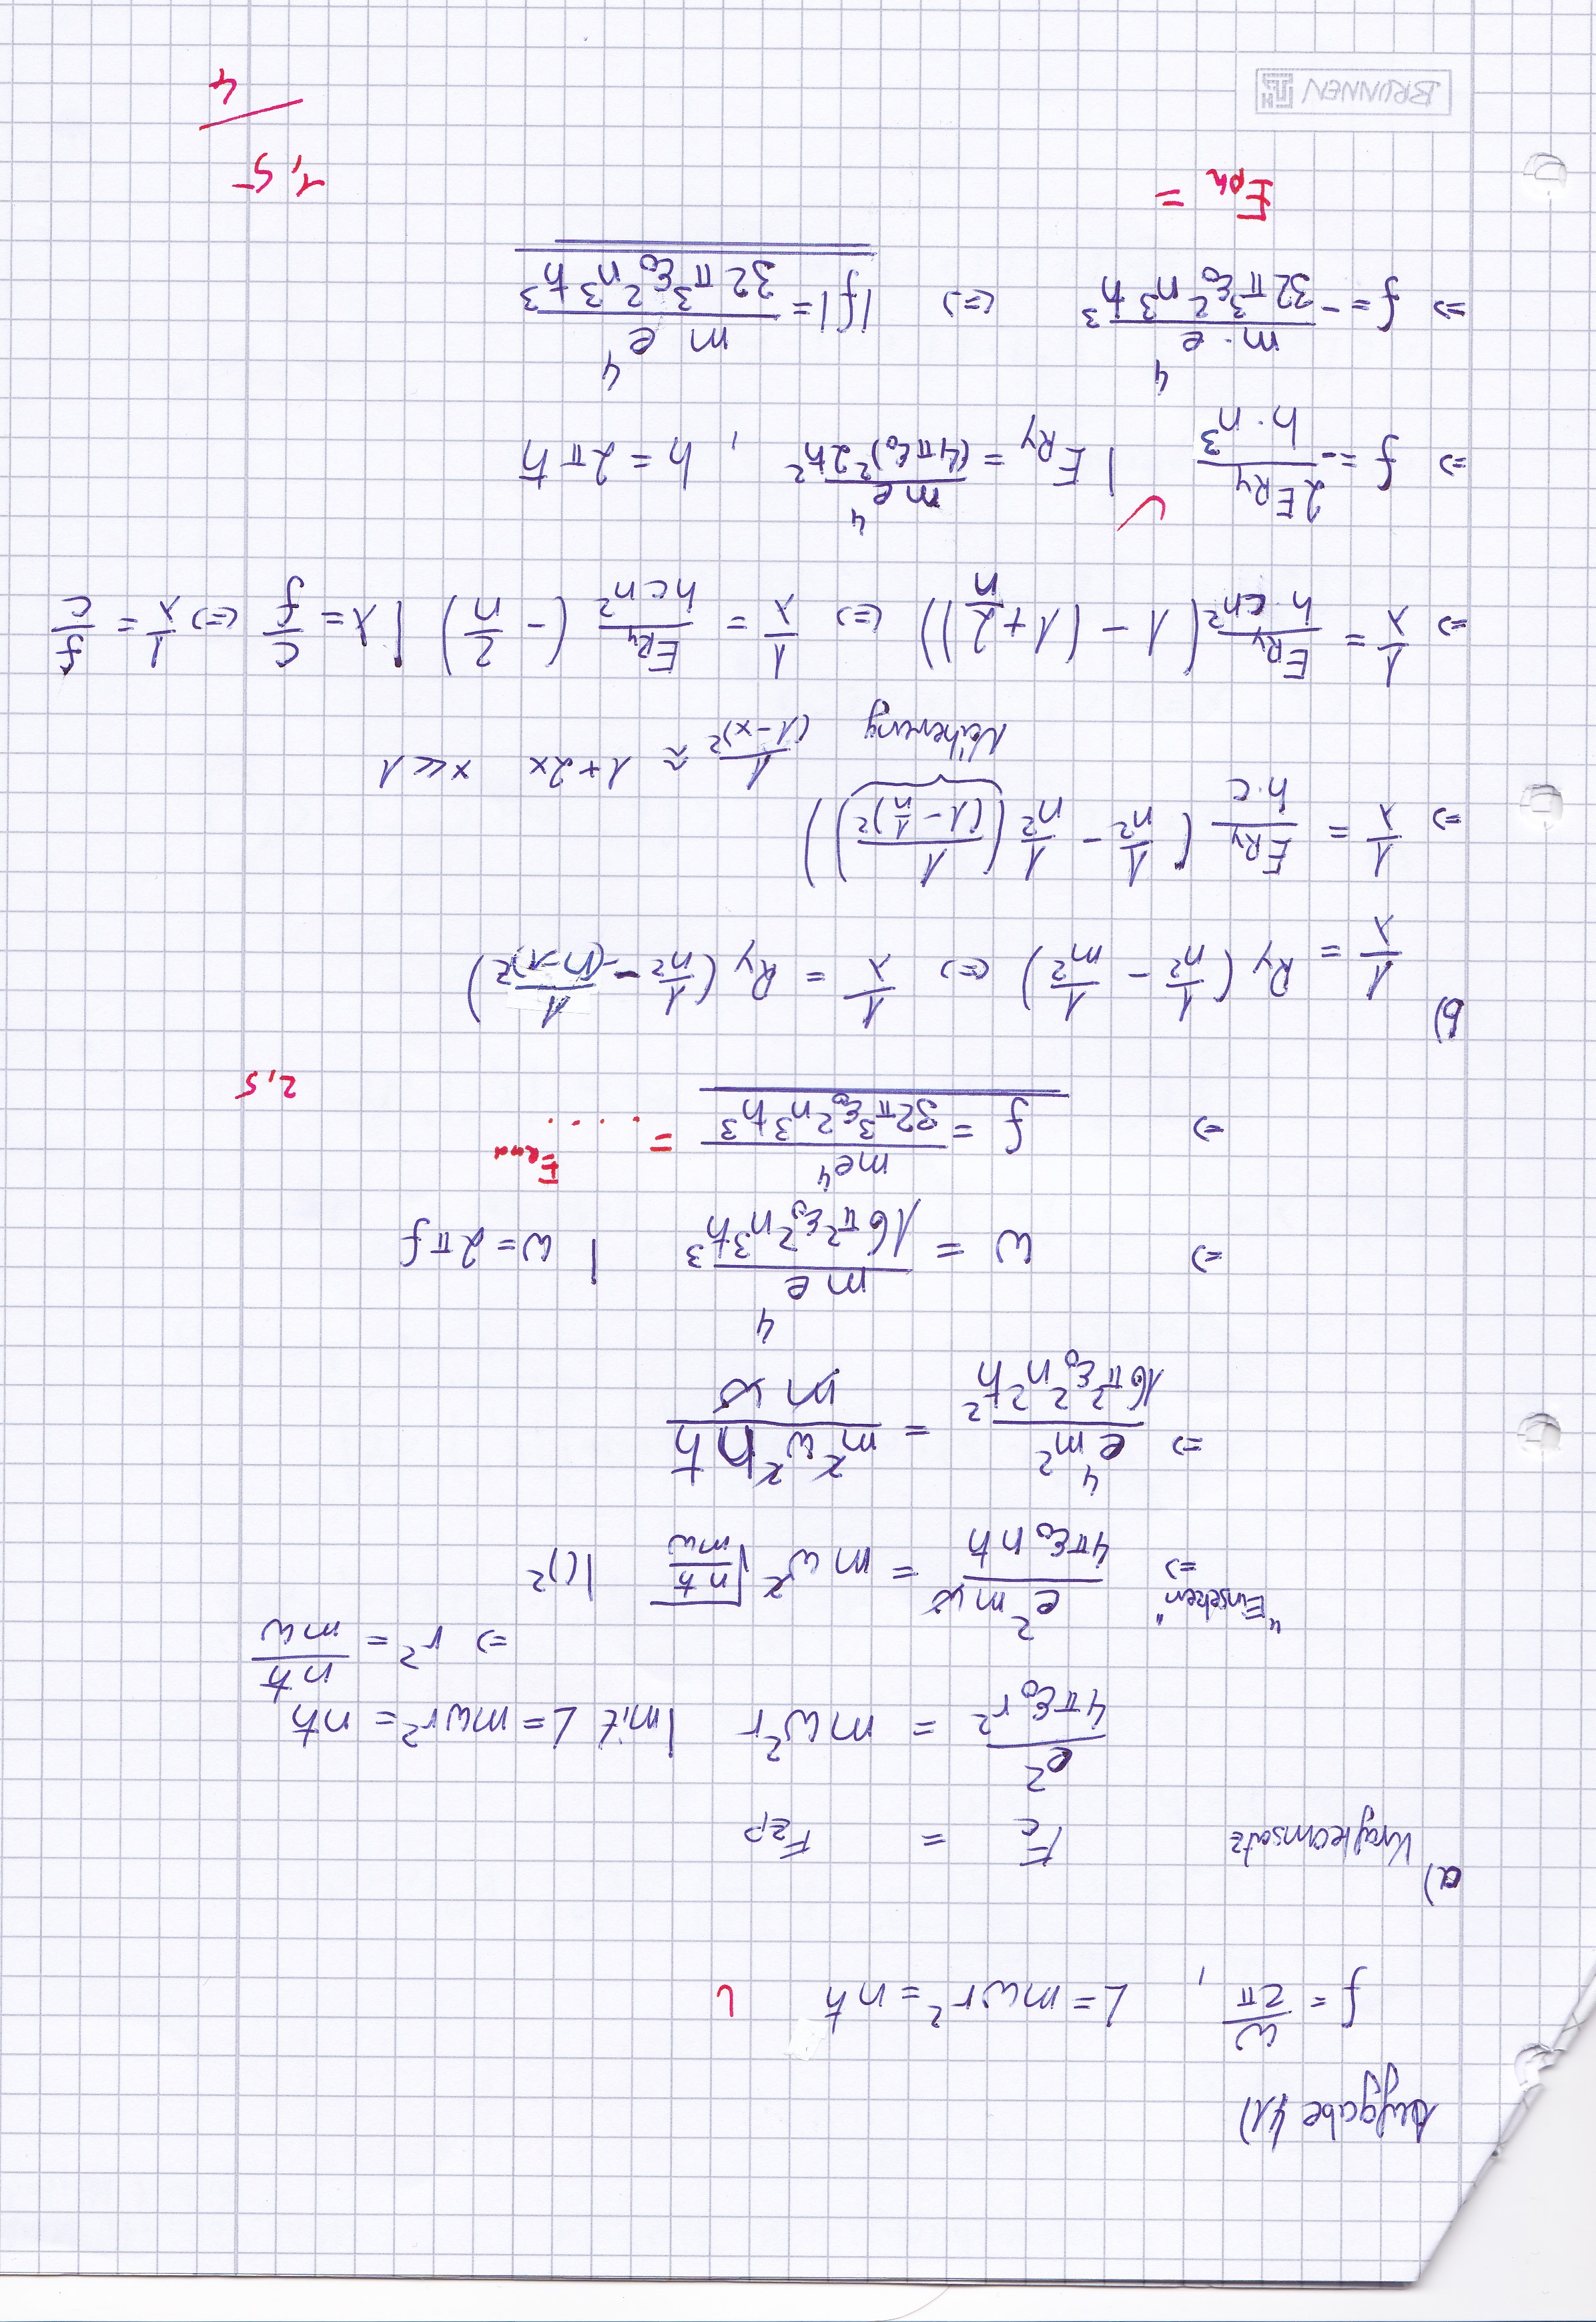 Aufgabe 41)
f = ω/2π , L = mωr² = nħ
a)
Krafteansatz F_c = F_zp
e²/(4πε₀r²) = mω²r | mit L = mωr² = nħ
⇒ r² = nħ/(mω)
"Einsetzen" ⇒ e²mω/(4πε₀nħ) = mω² √(nħ/(mω)) | ()²
⇒ e⁴m²/(16π²ε₀²n²ħ²) = m²ω²nħ/(mω)
⇒ ω = me⁴/(16π²ε₀²n³ħ³) | ω = 2πf
⇒ f = me⁴/(32π³ε₀²n³ħ³) = ....
2,5
b)
1/λ = Ry (1/n² - 1/m²) ⇔ 1/λ = Ry (1/n² - 1/(n-1)²)
⇒ 1/λ = E_Ry/(h·c) (1/n² - 1/n² (1/(1-1/n)²))
Näherung 1/(1-x)² ≈ 1+2x x≪1
⇒ 1/λ = E_Ry/(hcn²) (1-(1+2/n)) ⇔ 1/λ = E_Ry/(hcn²) (-2/n) | λ = c/f ⇔ 1/λ = f/c
⇒ f = -2E_Ry/(h·n³) ✓ | E_Ry = me⁴/((4πε₀)²2ħ²) , h = 2πħ
⇒ f = -m·e⁴/(32π³ε₀²n³ħ³) ⇔ |f| = me⁴/(32π³ε₀²n³ħ³)
E_ph =
1,5
/4
BRUNNEN